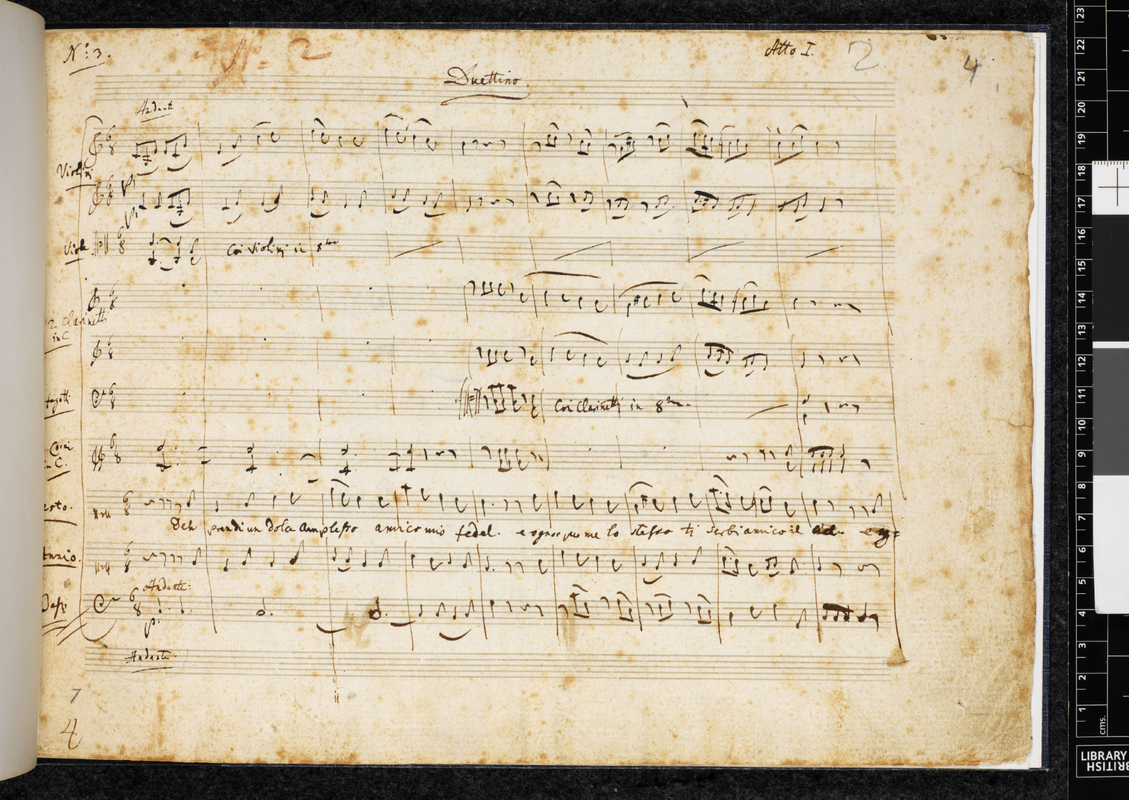 No: 3.
No. 2
Atto I.
2
4
Duettino
Andante
Violini
Viola
Coi Violini in 8va
2 Clarinetti
in C
Fagotti
Coi Clarinetti in 8va
Corni
in C.
Deh prendi un dolce amplesso amico mio fedel. e ognor per me lo stesso ti serbi amico il ciel e og=
Andante
Bassi
Andante
7
4
23
22
21
20
19
18
17
16
15
14
13
12
11
10
9
8
7
6
5
4
3
2
1
cms.
LIBRARY
BRITISH